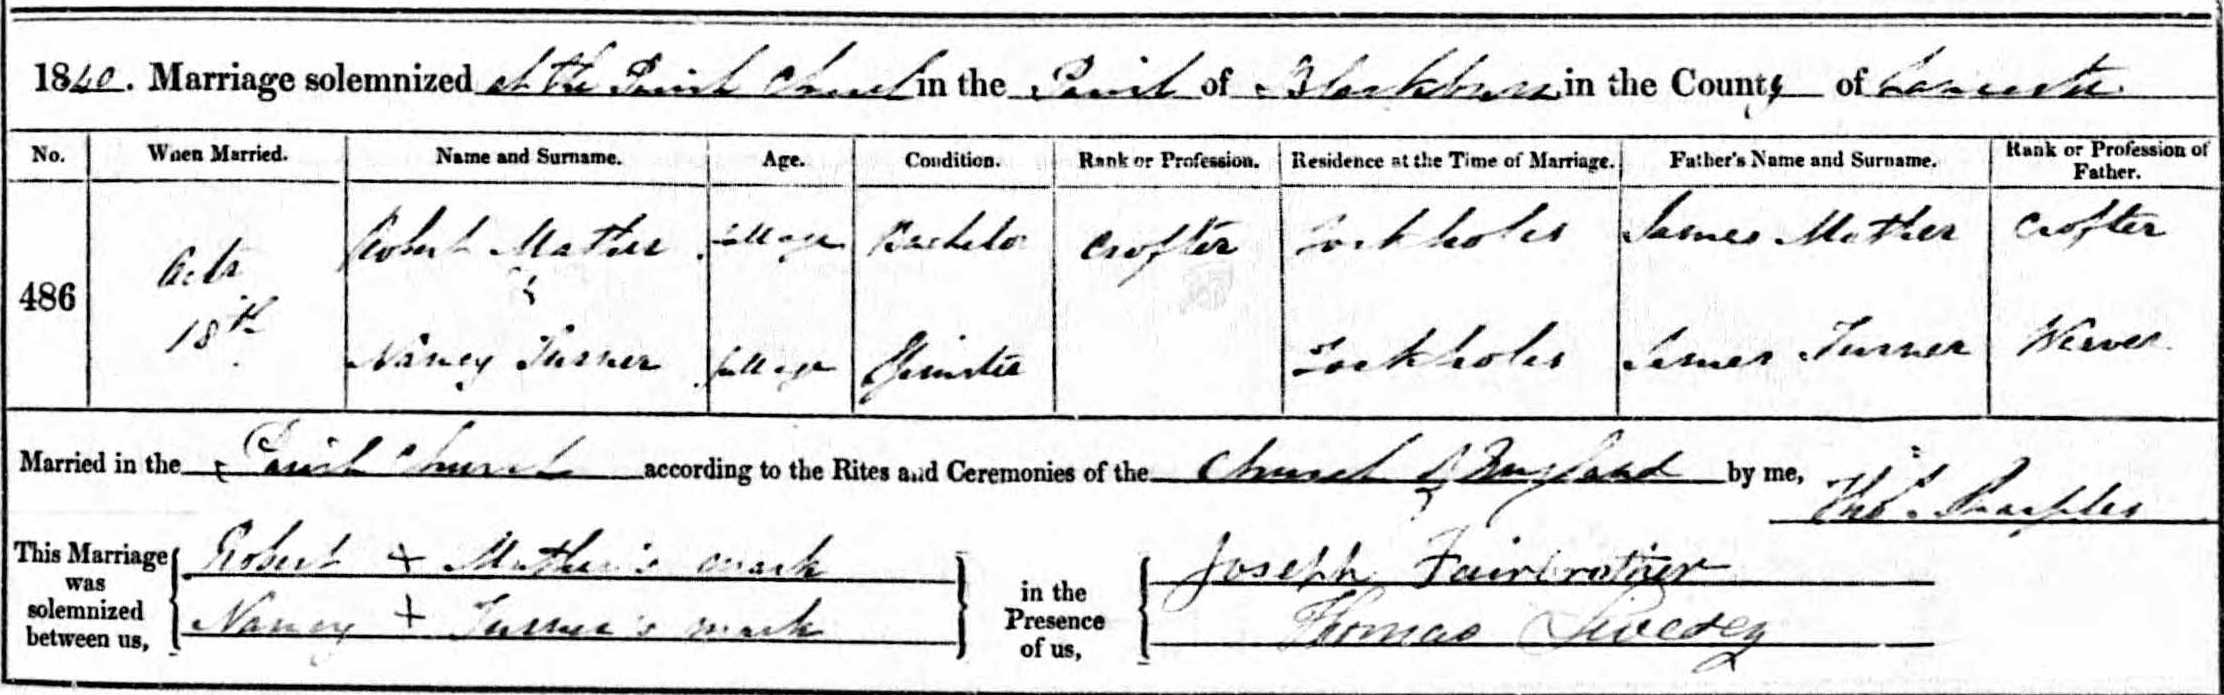 1840. Marriage solemnized at the Parish Church in the Parish of Blackburn in the County of Lancaster
No. When Married. Name and Surname. Age. Condition. Rank or Profession. Residence at the Time of Marriage. Father's Name and Surname. Rank or Profession of Father.
486 Octr 18th Robert Mather full age Bachelor Crofter Tockholes James Mather Crofter
&
Nancy Turner full age Spinster Tockholes James Turner Weaver
Married in the Parish Church according to the Rites and Ceremonies of the Church of England by me, Thos. Sharples
This Marriage was solemnized between us, Robert + Mather's mark in the Presence of us, Joseph Fairbrother
Nancy + Turner's mark Thomas